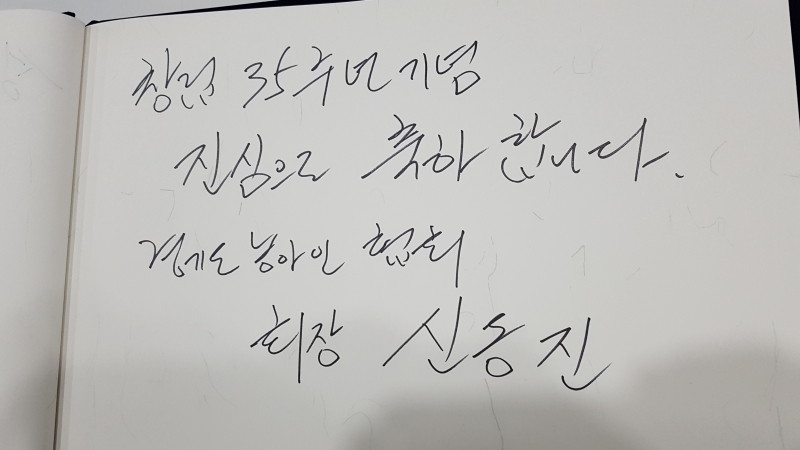 창립 35주년 기념
진심으로 축하 합니다.
경기도 농아인 협회
회장 신동진